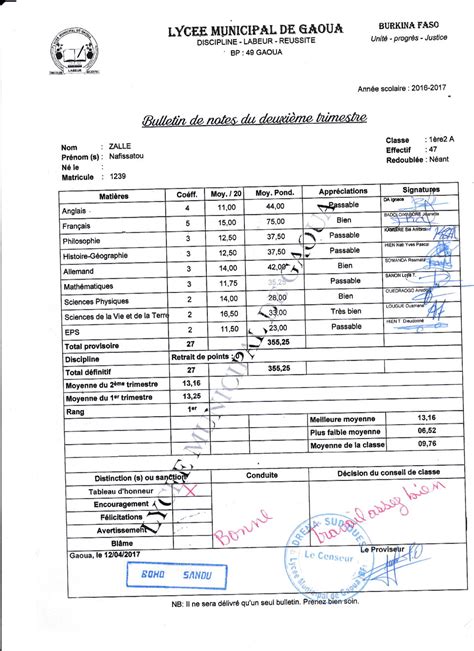 LYCEE MUNICIPAL DE GAOUA
DISCIPLINE - LABEUR - REUSSITE
BP : 49 GAOUA
BURKINA FASO
Unité - progrès - Justice
Année scolaire : 2016-2017
Bulletin de notes du deuxième trimestre
Nom : ZALLE
Prénom (s) : Nafissatou
Né le :
Matricule : 1239
Classe : 1ère2 A
Effectif : 47
Redoublée : Néant
Matières Coéff. Moy. / 20 Moy. Pond. Appréciations Signatures
Anglais 4 11,00 44,00 Passable DA Ignace
Français 5 15,00 75,00 Bien
Philosophie 3 12,50 37,50 Passable
Histoire-Géographie 3 12,50 37,50 Passable HIEN Yves Pascal
Allemand 3 14,00 42,00 Bien SOMANDA
Mathématiques 3 11,75 35,25 Passable SANON
Sciences Physiques 2 14,00 28,00 Bien OUEDRAOGO
Sciences de la Vie et de la Terre 2 16,50 33,00 Très bien LOUGUE Ousmane
EPS 2 11,50 23,00 Passable HIEN T. Dieudonné
Total provisoire 27 355,25
Discipline Retrait de points : 0
Total définitif 27 355,25
Moyenne du 2ème trimestre 13,16
Moyenne du 1er trimestre 13,25
Rang 1er
Meilleure moyenne 13,16
Plus faible moyenne 06,52
Moyenne de la classe 09,76
LYCEE MUNICIPAL DE GAOUA
Distinction (s) ou sanction Conduite Décision du conseil de classe
Tableau d'honneur X
Encouragement
Félicitations
Avertissement
Blâme
Bonne
travail assez bien
Gaoua, le 12/04/2017
Le Censeur
Le Proviseur
BOHO SANDU
NB: Il ne sera délivré qu'un seul bulletin. Prenez bien soin.